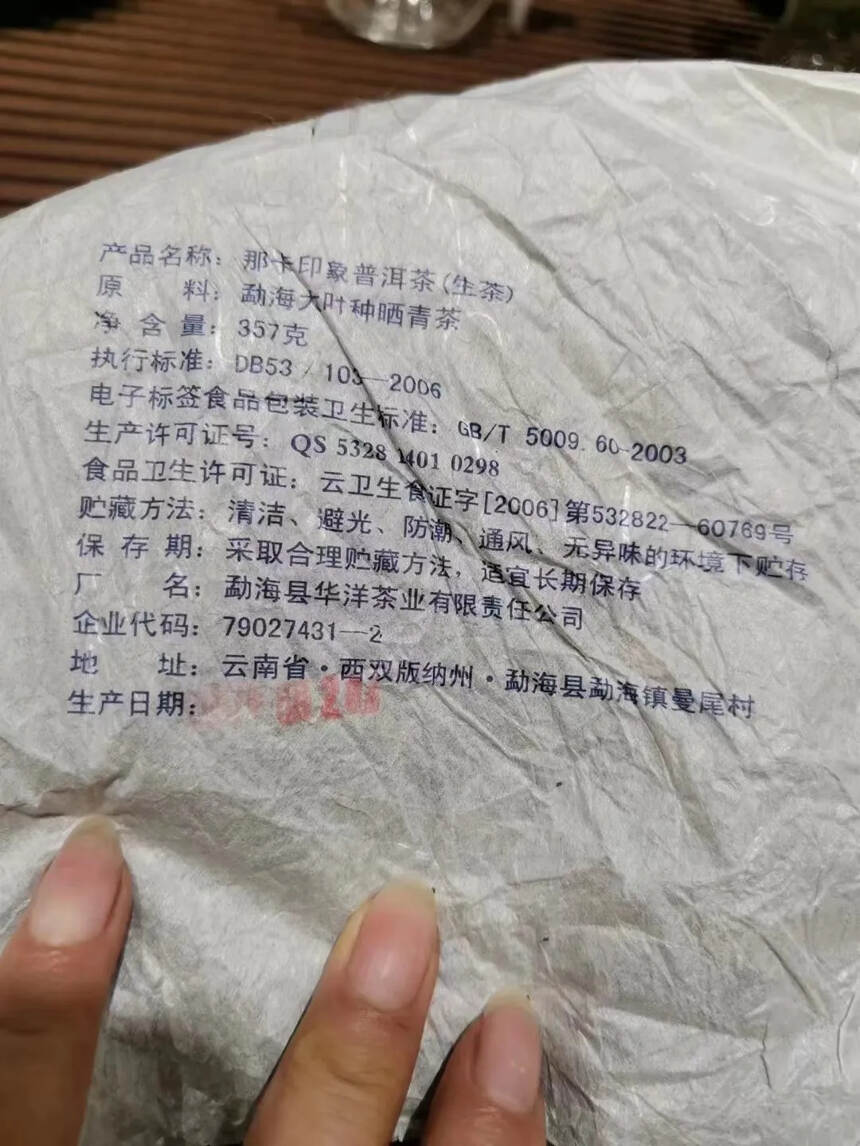 产品名称：那卡印象普洱茶(生茶)
原 料：勐海大叶种晒青茶
净 含 量：357克
执行标准：DB53／103—2006
电子标签食品包装卫生标准：GB/T 5009.60-2003
生产许可证号：QS 5328 1401 0298
食品卫生许可证：云卫生食证字[2006]第532822—60769号
贮藏方法：清洁、避光、防潮、通风、无异味的环境下贮存
保 存 期：采取合理贮藏方法，适宜长期保存
厂 名：勐海县华洋茶业有限责任公司
企业代码：79027431—2
地 址：云南省·西双版纳州·勐海县勐海镇曼尾村
生产日期：